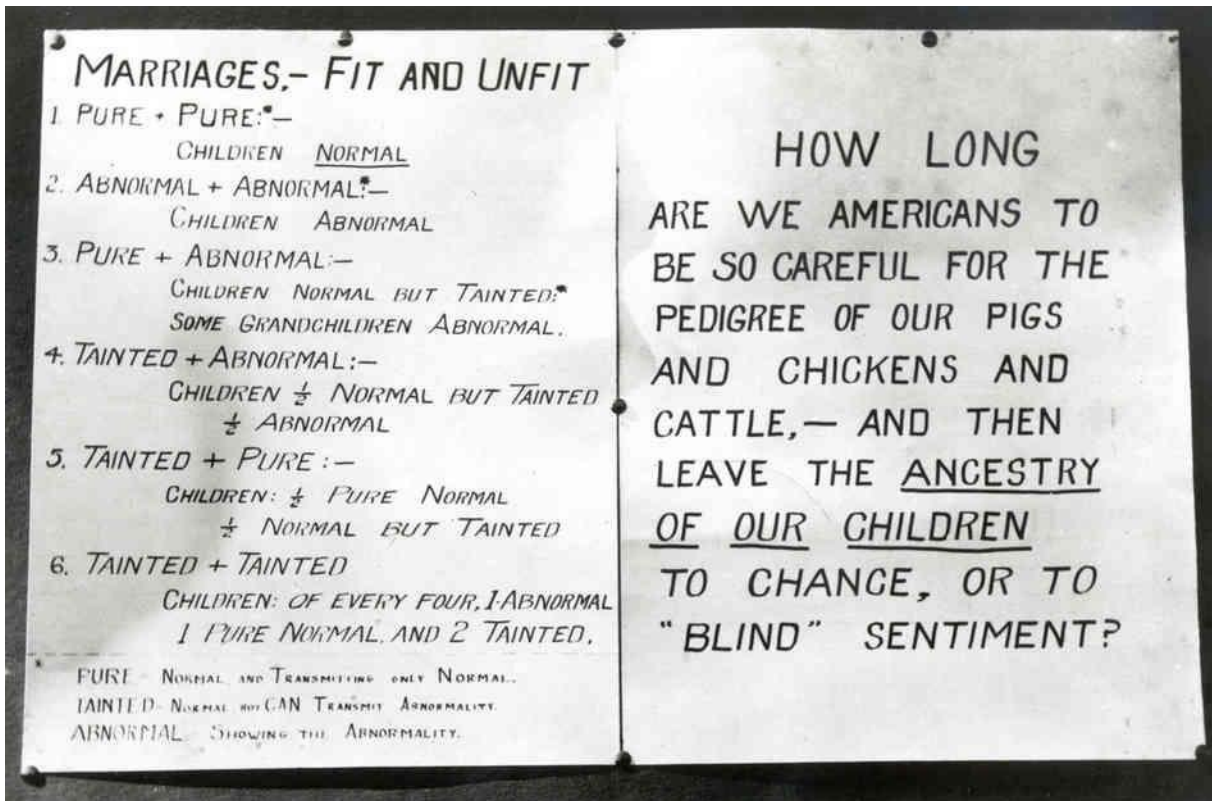 MARRIAGES,- FIT AND UNFIT
1. PURE + PURE:*—
CHILDREN NORMAL
2. ABNORMAL + ABNORMAL:*—
CHILDREN ABNORMAL
3. PURE + ABNORMAL:—
CHILDREN NORMAL BUT TAINTED:*
SOME GRANDCHILDREN ABNORMAL.
4. TAINTED + ABNORMAL:—
CHILDREN ½ NORMAL BUT TAINTED
½ ABNORMAL
5. TAINTED + PURE:—
CHILDREN: ½ PURE NORMAL
½ NORMAL BUT TAINTED
6. TAINTED + TAINTED
CHILDREN: OF EVERY FOUR, 1-ABNORMAL
1 PURE NORMAL, AND 2 TAINTED.
PURE - NORMAL AND TRANSMITTING ONLY NORMAL.
TAINTED - NORMAL BUT CAN TRANSMIT ABNORMALITY.
ABNORMAL - SHOWING THE ABNORMALITY.
HOW LONG
ARE WE AMERICANS TO
BE SO CAREFUL FOR THE
PEDIGREE OF OUR PIGS
AND CHICKENS AND
CATTLE,— AND THEN
LEAVE THE ANCESTRY
OF OUR CHILDREN
TO CHANCE, OR TO
"BLIND" SENTIMENT?